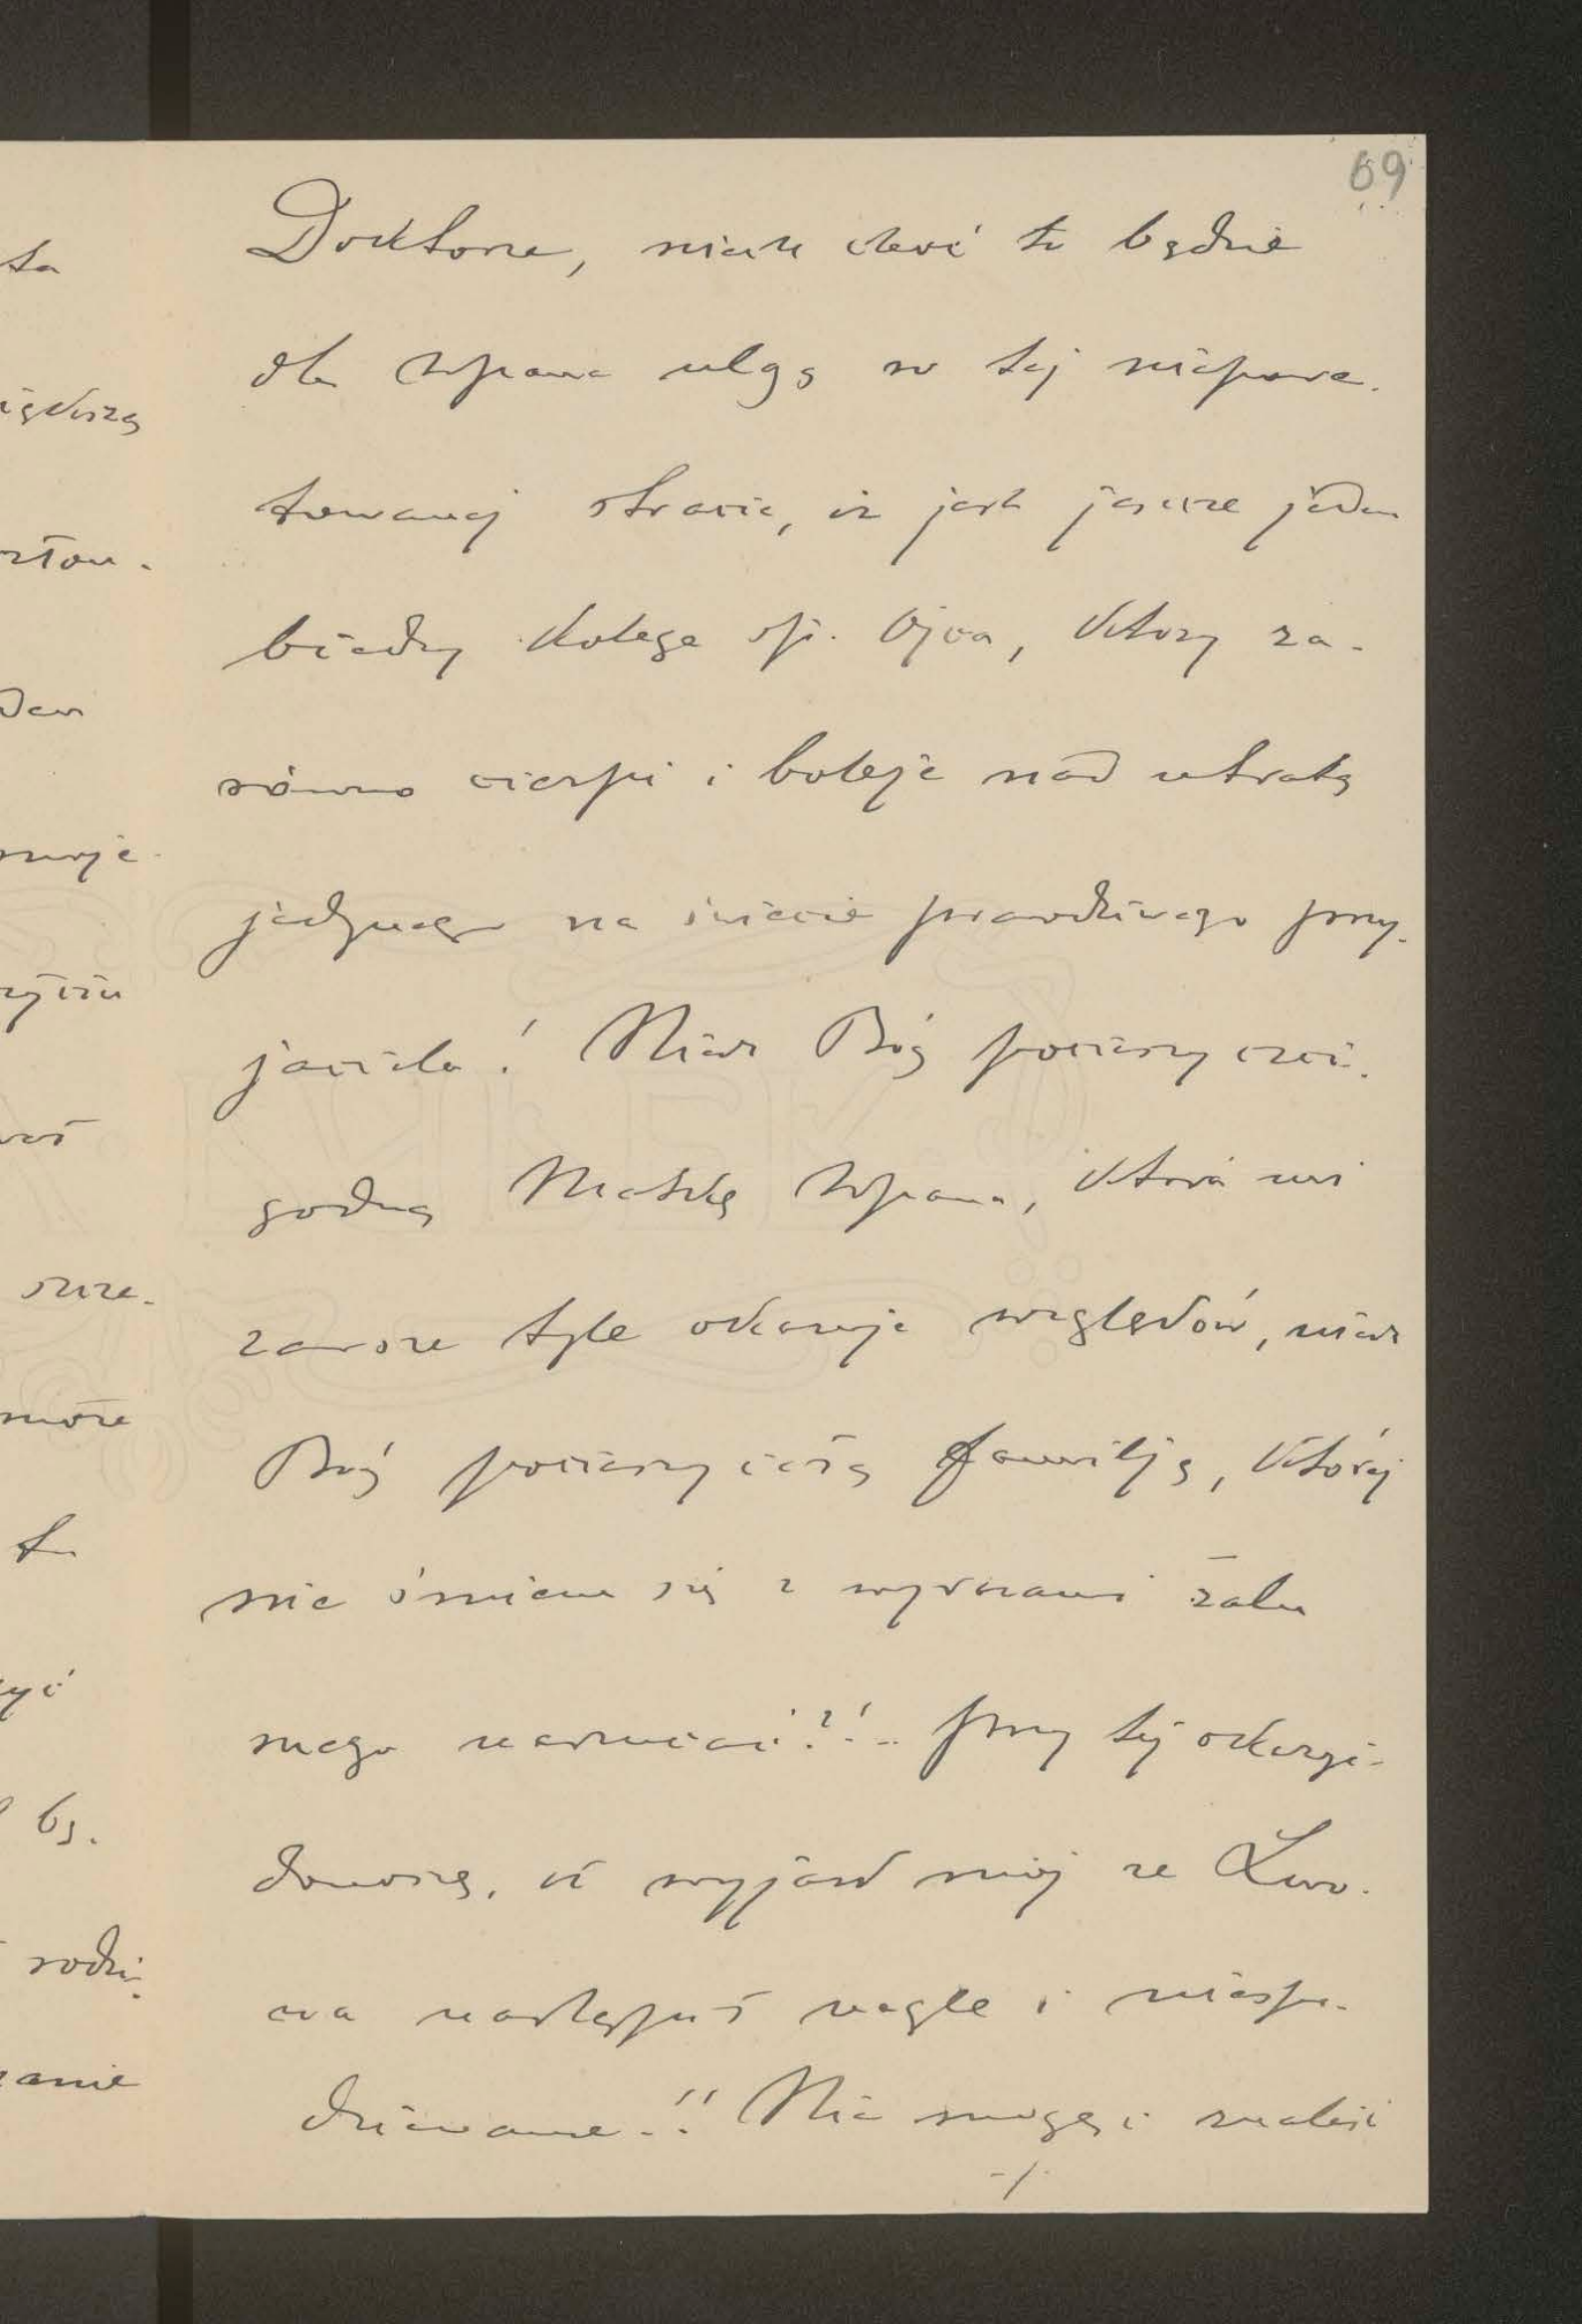 69
ta
Doktorze, niech choć to będzie
dla WPana ulgą w tej niepowe-
iększą
towanej stracie, iż jest jeszcze jeden
złow-
biedny kolega śp. Ojca, który za-
den
równo cierpi i boleje nad utratą
muje
jedynego na świecie prawdziwego przy-
jaciela! Niech Bóg pocieszy czci-
godną Matkę WPana, która mi
zawsze tyle okazuje względów, niech
szcze-
może
Bóg pocieszy całą familję, której
to
nie śmiem się z wyrazami żalu
yć
mego narzucać?!.. Przy tej okazji
bę-
donoszę, iż wyjazd mój ze Lwo-
rodzi-
wa nastąpił nagle i niespo-
anie
dziewanie!! Nie mogąc znaleść
-/-